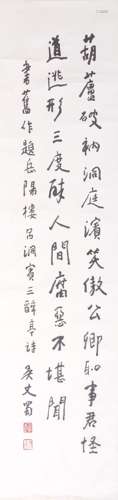 葫蘆破衲洞庭濱笑傲公卿恥事君怪
道逃形三度醉人間腐惡不堪聞
書舊作題岳陽樓呂洞賓三醉亭詩 吳丈蜀